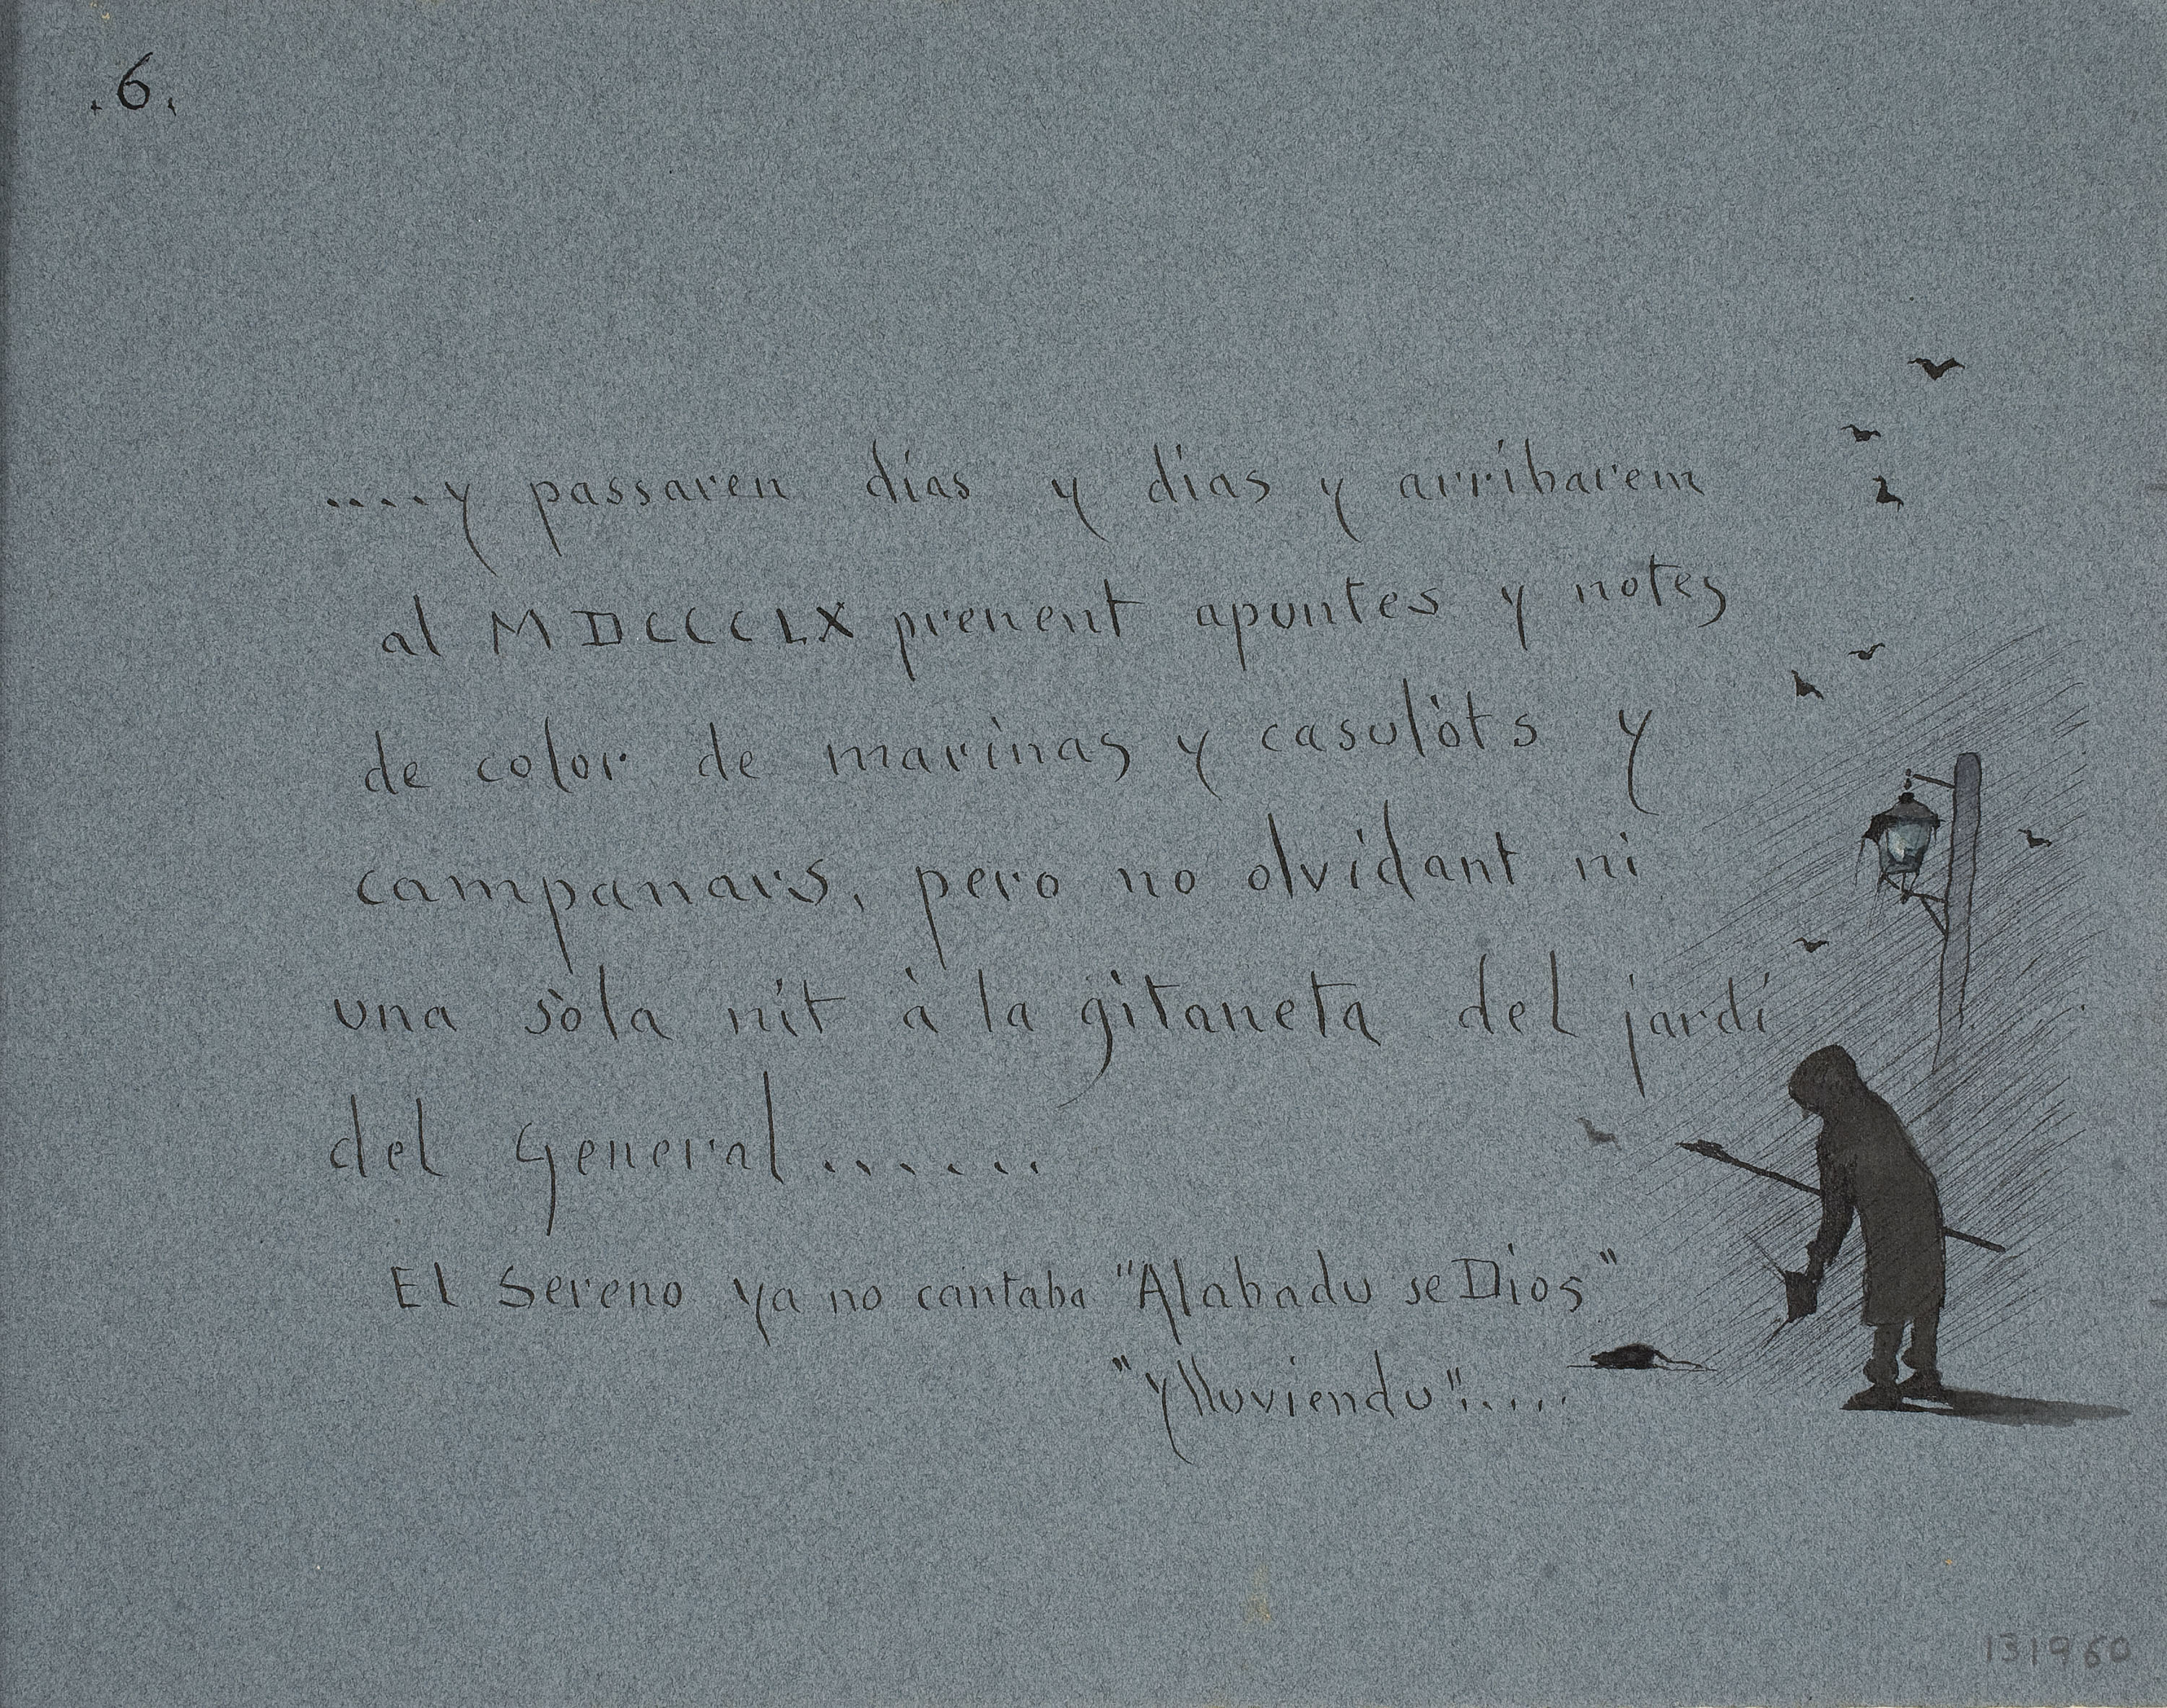 .6.
....y passaren días y dias y arribarem
al MDCCCLX prenent apuntes y notes
de color de marinas y casulòts y
campanars, pero no olvidant ni
una sòla nit à la gitaneta del jardí
del General.......
El Sereno ya no cantaba "Alabadu se Dios"
"y lluviendu".....
131960